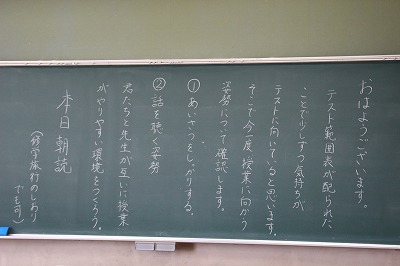 おはようございます。
テスト範囲表が配られた
ことで少しずつ気持ちが
テストに向いていると思います。
そこで今一度授業に向かう
姿勢について確認します。
①あいさつをしっかりする。
②話を聴く姿勢
君たちと先生が互いに授業
がやりやすい環境をつくろう。
本日 朝読
(修学旅行のしおり
でも可)